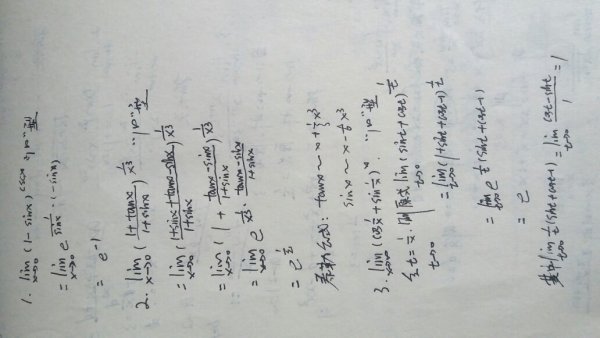 1. lim x→0 (1-sinx)^cscx 为"1^∞"型
= lim x→0 e^(1/sinx · (-sinx))
= e^-1
2. lim x→0 ((1+tanx)/(1+sinx))^(1/x³) "1^∞"型
= lim x→0 ((1+sinx+tanx-sinx)/(1+sinx))^(1/x³)
= lim x→0 (1+(tanx-sinx)/(1+sinx))^(1/x³)
= lim x→0 e^(1/x³ · (tanx-sinx)/(1+sinx))
= e^(1/2)
泰勒公式: tanx~x+⅓x³
sinx~x-⅙x³
3. lim x→∞ (cos1/x+sin1/x)^x "1^∞"型
令t=1/x, 则原式 lim t→0 (sint+cost)^(1/t)
= lim t→0 (1+sint+cost-1)^(1/t)
= lim t→0 e^(1/t(sint+cost-1))
= e
其中lim t→0 1/t(sint+cost-1) = lim t→0 (cost-sint)/1 = 1